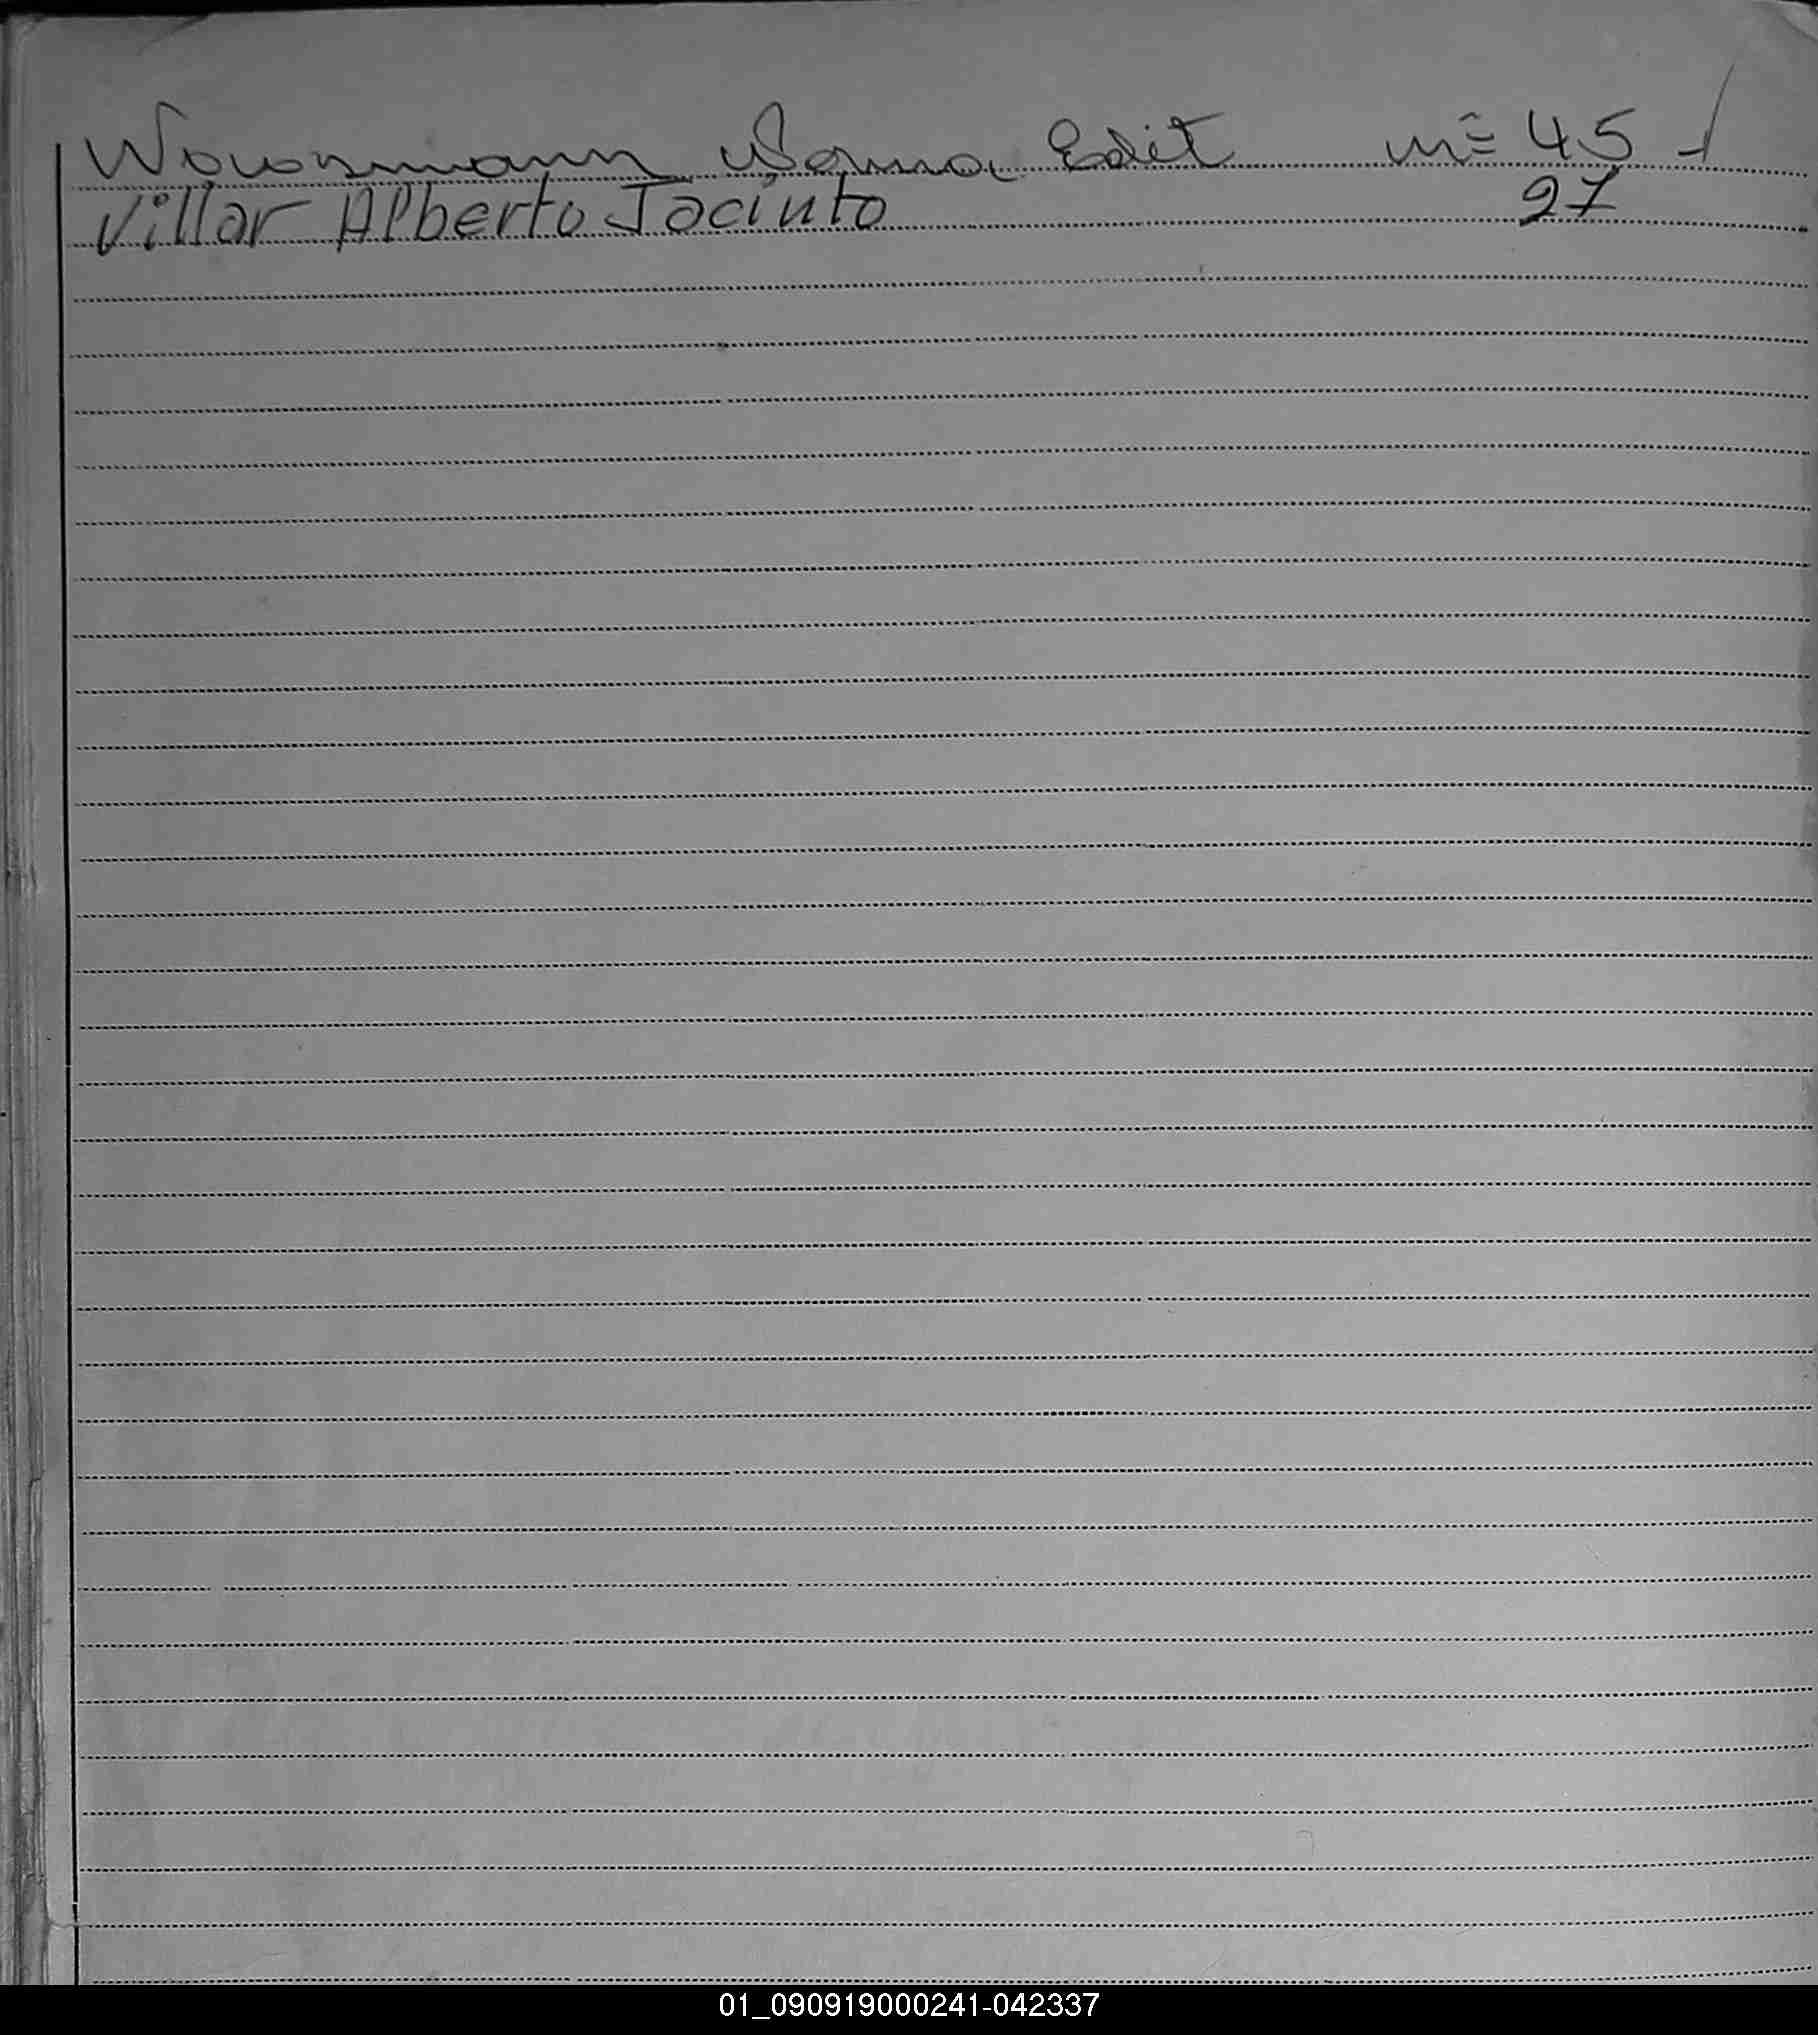 Norma Edit nº 45
Villar Alberto Jacinto 27
01_090919000241-042337